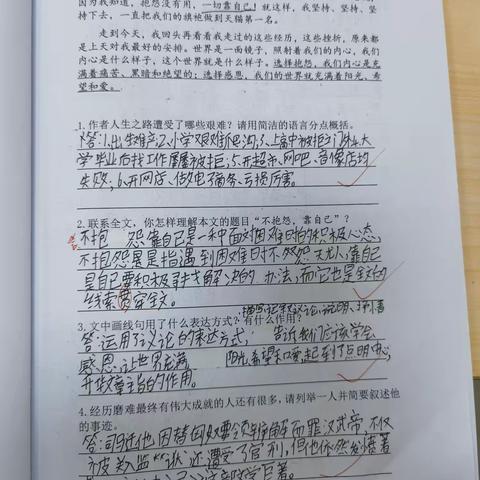 因为我知道，抱怨没有用，一切靠自己！就这样，我坚持、坚持、坚
持下去，一直把我们的旗袍做到天猫第一名。
走到今天，我回头再看看我走过的这些经历，这些挫折，原来都
是上天对我最好的安排。世界是一面镜子，照射着我们的内心，我们
内心是什么样子，这个世界就是什么样子。选择抱怨，我们的内心就充
满着痛苦、黑暗和绝望的；选择感恩，我们的世界就充满着阳光、希
望和爱。
1.作者人生之路遭受了哪些艰难？请用简洁的语言分点概括。
答:1.出生难产;2.小学艰难 沟;3.上高中被拒之门外4.大
学毕业后找工作屡屡被拒;5.开超市、网吧、音像店均
失败;6.开网店、做电子商务、亏损厉害。
2.联系全文，你怎样理解本文的题目“不抱怨，靠自己”？
不抱 怨,靠自己是一种面对困难时的积极心态,
不抱怨 是指遇到困难时不 怨天尤人,靠自己
是自己要积极寻找解决的 办法,而它也是全文的
线索贯穿全文。
描写,记叙,议论,说明、抒情
3.文中画线句用了什么表达方式？有什么作用？
答:运用了议论的表达方式; 告诉我们应该学会
感恩,让世界充满 阳光,希望和爱,起到了点明中心,
升华文章主旨的作用。
4.经历磨难最终有伟大成就的人还有很多，请列举一人并简要叙述他
的事迹。
答:司马迁他,因替 李陵 而罪汉武帝,不仅
被关监 狱 还遭受了宫刑,但他依然发愤著